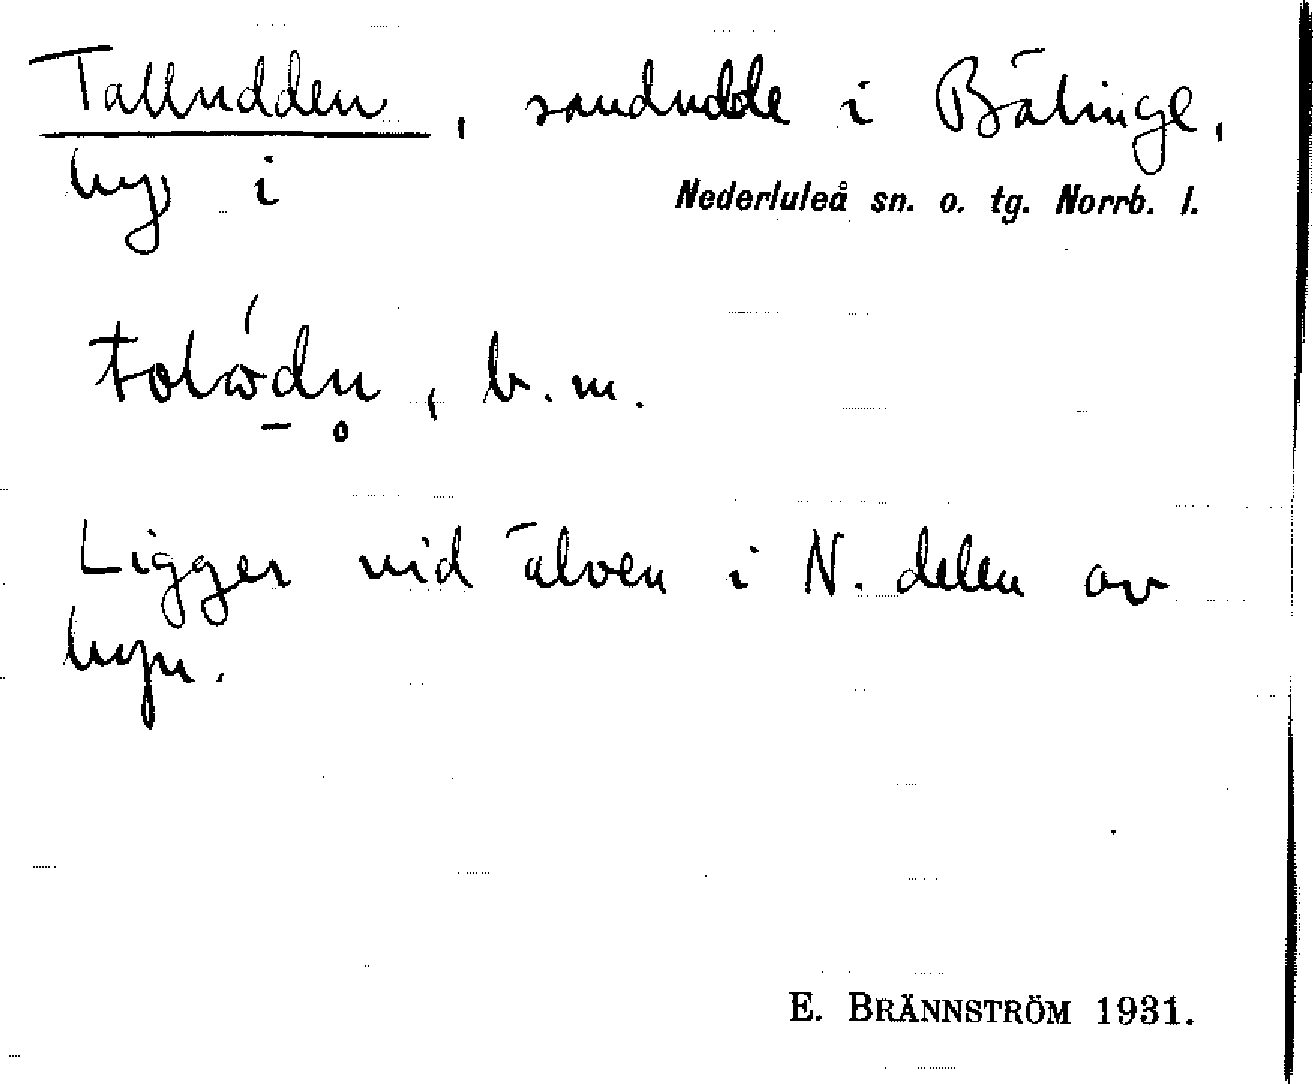 Talludden, sandudde i Bälinge,
by i Nederluleå sn. o. tg. Norrb. l.
b. m.
Ligger vid älven i N. delen av
byn.
E. BRÄNNSTRÖM 1931.